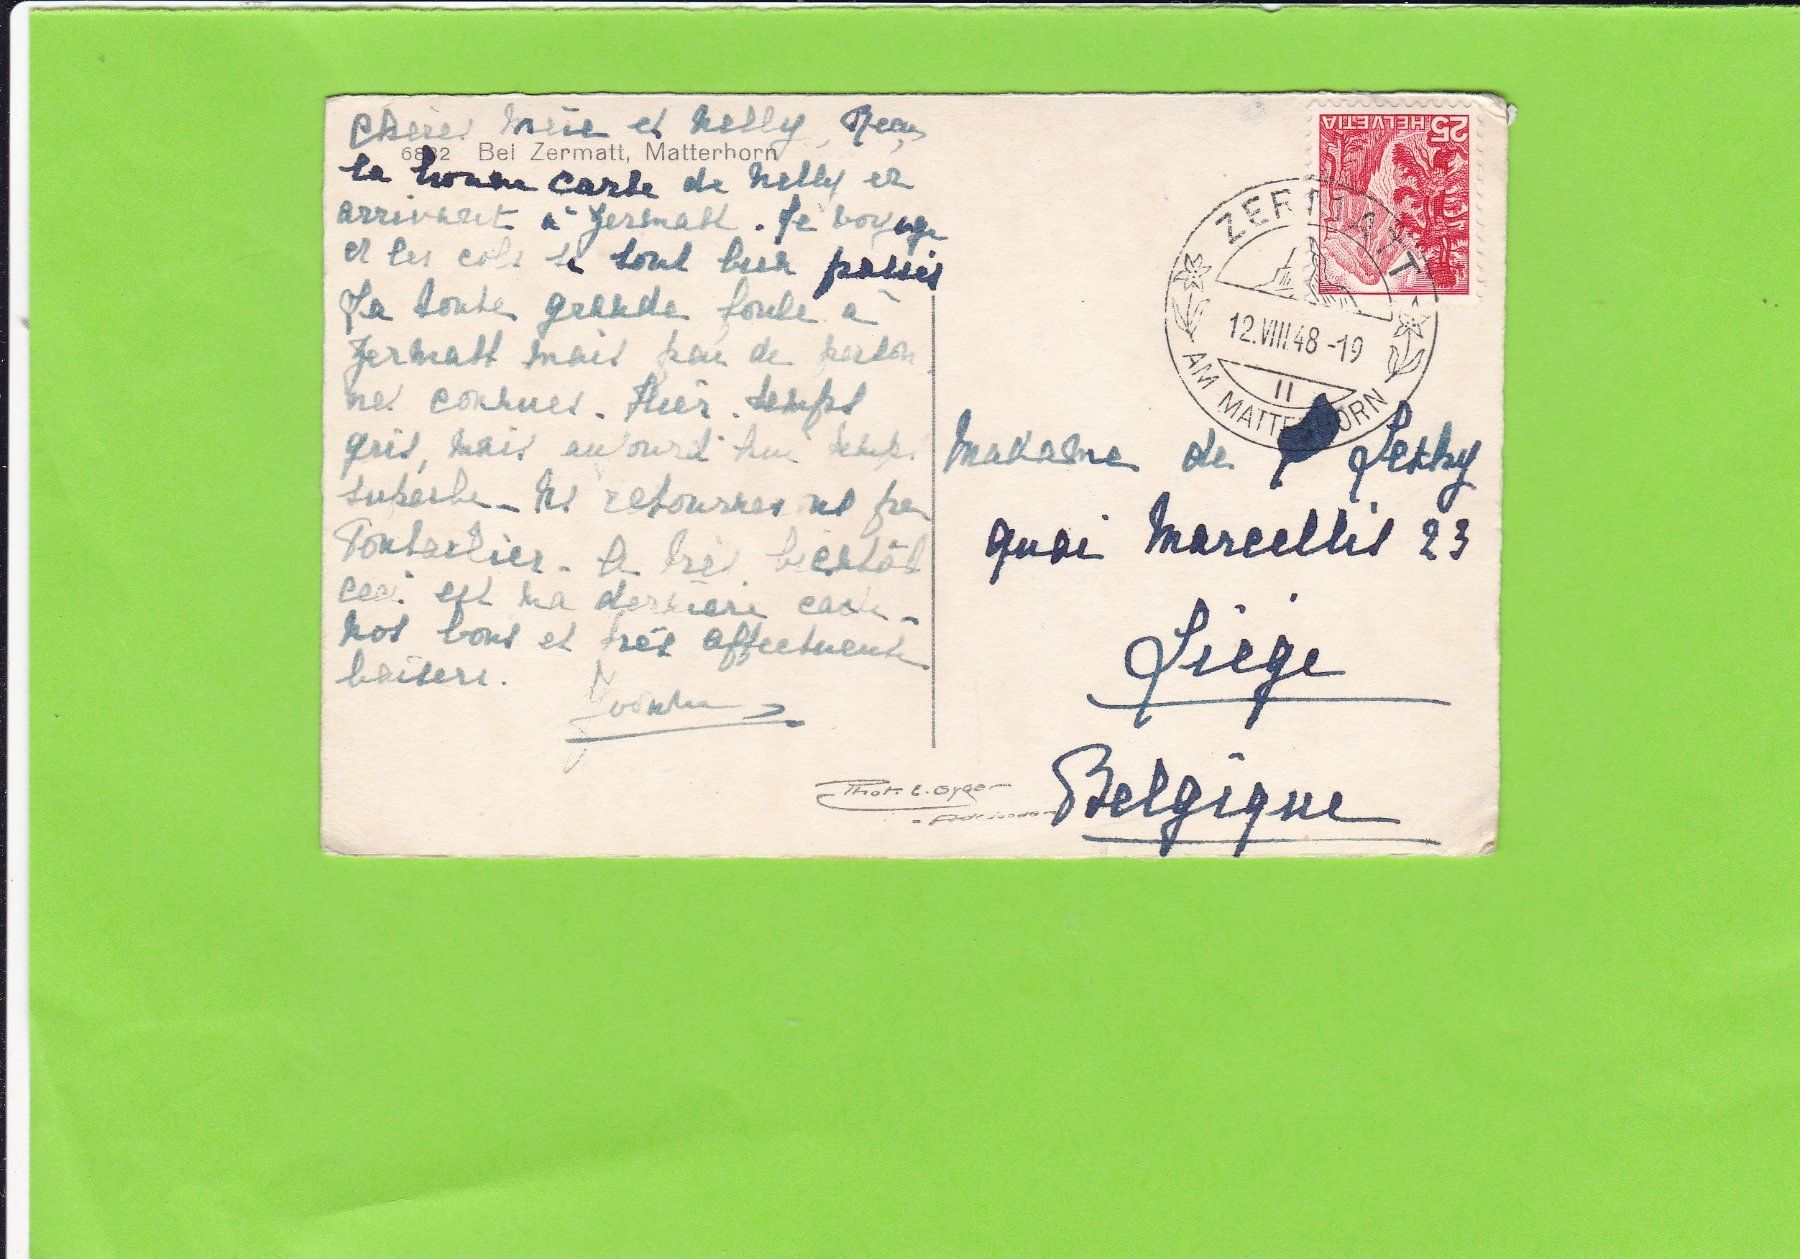 Chères Mère et Nelly, Reçu
6882 Bei Zermatt, Matterhorn
la bonne carte de Nelly en
arrivant à Zermatt. Le voyage
et les cols se sont bien passés
Il a toute grande foule à
Zermatt mais peu de person
nes connues. Hier temps
gris, mais aujourd'hui temps
superbe - Ns retournerons par
Pontarlier - A très bientôt
ceci est ma dernière carte -
Nos bons et très affectueux
baisers.
HELVETIA 25
ZERMATT
12.VIII.48-19
II
AM MATTERHORN
Madame de
quai Marcellis 23
Liège
Belgique
Phot. E. Gyger
- Adelboden -